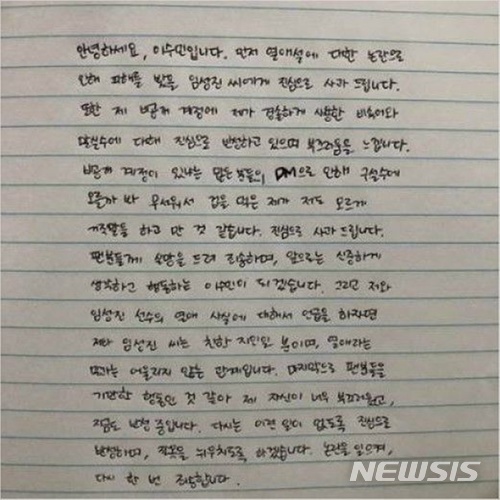 안녕하세요, 이수민입니다. 먼저 열애설에 대한 논란으로
인해 피해를 받을 임성진 씨에게 진심으로 사과 드립니다.
또한 제 비공개 계정에 제가 경솔하게 사용한 비속어와
말실수에 대해 진심으로 반성하고 있으며 부끄러움을 느낍니다.
비공개 계정이 있냐는 많은 분들의 DM으로 인해 구설수에
오를까 봐 무서워서 겁을 먹은 제가 저도 모르게
거짓말을 하고 만 것 같습니다. 진심으로 사과 드립니다.
팬분들께 실망을 드려 죄송하며, 앞으로는 신중하게
생각하고 행동하는 이수민이 되겠습니다. 그리고 저와
임성진 선수의 열애 사실에 대해서 언급을 하자면
저와 임성진 씨는 친한 지인일 뿐이며, 열애라는
말과는 어울리지 않는 관계입니다. 마지막으로 팬분들을
기만한 행동인 것 같아 제 자신이 너무 부끄러웠고,
지금도 반성 중입니다. 다시는 이런 일이 없도록 진심으로
반성하며, 잘못을 뉘우치도록 하겠습니다. 논란을 일으켜,
다시 한 번 죄송합니다.
NEWSIS